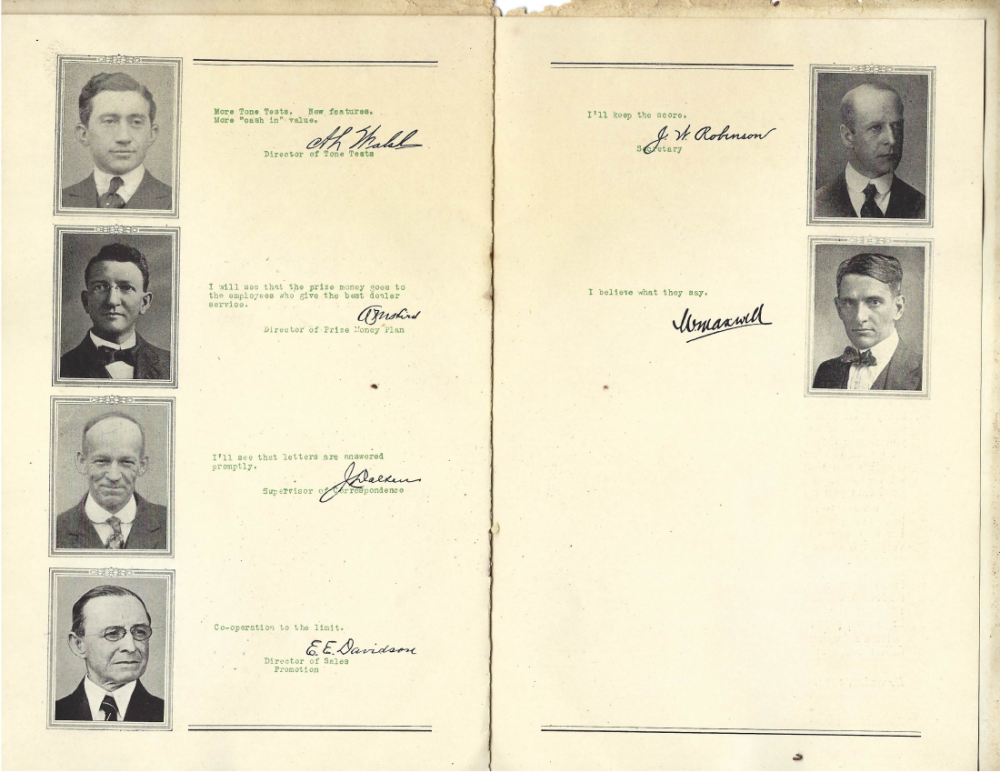 More Tone Tests. New features.
More "cash in" value.
Director of Tone Tests
I will see that the prize money goes to
the employees who give the best dealer
service.
Director of Prize Money Plan
I'll see that letters are answered
promptly.
Supervisor of Correspondence
Co-operation to the limit.
E. E. Davidson
Director of Sales
Promotion
I'll keep the score.
J. W. Robinson
Secretary
I believe what they say.
Wmaxwell